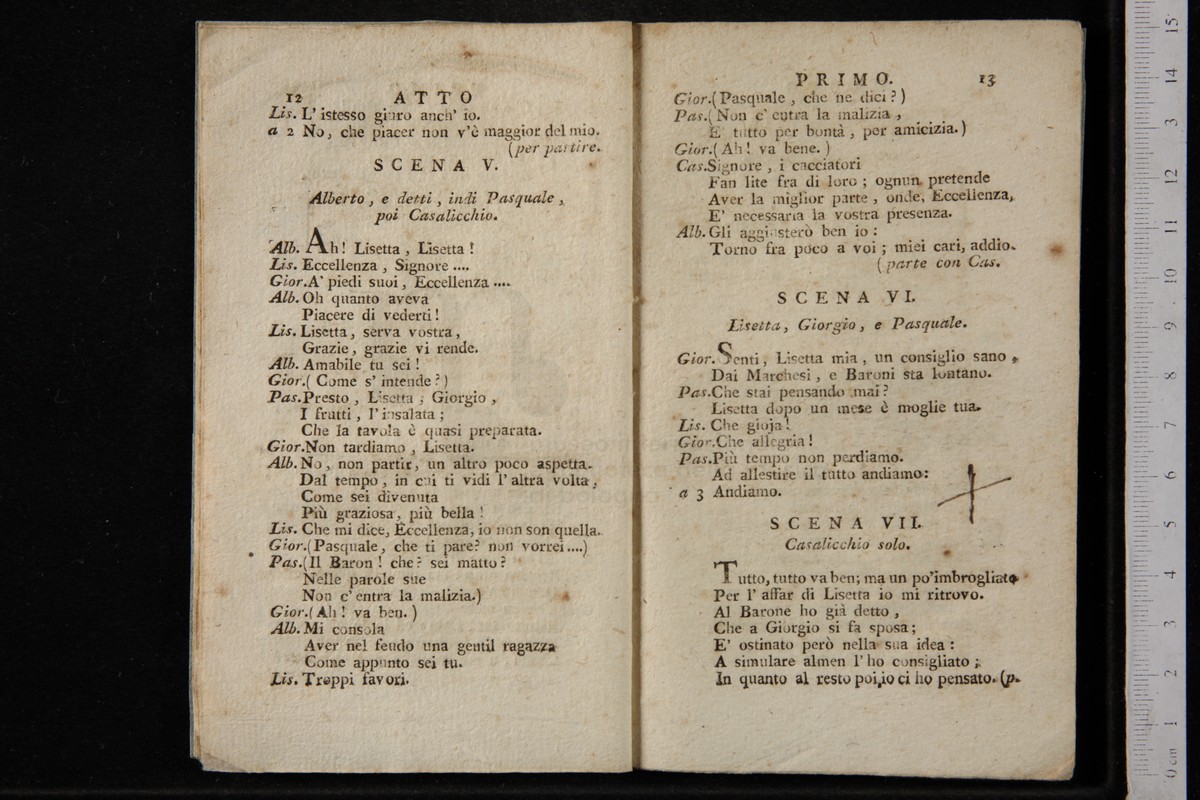 12 ATTO
Lis. L' istesso giuro anch' io.
a 2 No, che piacer non v'è maggior del mio.
(per partire.
SCENA V.
Alberto, e detti, indi Pasquale,
poi Casalicchio.
Alb. Ah! Lisetta, Lisetta!
Lis. Eccellenza, Signore....
Gior. A' piedi suoi, Eccellenza....
Alb. Oh quanto aveva
Piacere di vederti!
Lis. Lisetta, serva vostra,
Grazie, grazie vi rende.
Alb. Amabile tu sei!
Gior. (Come s' intende?)
Pas. Presto, Lisetta; Giorgio,
I frutti, l' insalata;
Che la tavola è quasi preparata.
Gior. Non tardiamo, Lisetta.
Alb. No, non partir, un altro poco aspetta.
Dal tempo, in cui ti vidi l' altra volta,
Come sei divenuta
Più graziosa, più bella!
Lis. Che mi dice, Eccellenza, io non son quella.
Gior. (Pasquale, che ti pare? non vorrei....)
Pas. (Il Baron! che? sei matto?
Nelle parole sue
Non c' entra la malizia.)
Gior. (Ah! va ben.)
Alb. Mi consola
Aver nel feudo una gentil ragazza
Come appunto sei tu.
Lis. Troppi favori.
PRIMO. 13
Gior. (Pasquale, che ne dici?)
Pas. (Non c' entra la malizia,
E' tutto per bontà, per amicizia.)
Gior. (Ah! va bene.)
Cas. Signore, i cacciatori
Fan lite fra di loro; ognun pretende
Aver la miglior parte, onde, Eccellenza,
E' necessaria la vostra presenza.
Alb. Gli aggiusterò ben io:
Torno fra poco a voi; miei cari, addio.
(parte con Cas.
SCENA VI.
Lisetta, Giorgio, e Pasquale.
Gior. Senti, Lisetta mia, un consiglio sano,
Dai Marchesi, e Baroni sta lontano.
Pas. Che stai pensando mai?
Lisetta dopo un mese è moglie tua.
Lis. Che gioja!
Gior. Che allegria!
Pas. Più tempo non perdiamo.
Ad allestire il tutto andiamo:
a 3 Andiamo.
SCENA VII.
Casalicchio solo.
Tutto, tutto va ben; ma un po' imbrogliato
Per l' affar di Lisetta io mi ritrovo.
Al Barone ho già detto,
Che a Giorgio si fa sposa;
E' ostinato però nella sua idea:
A simulare almen l' ho consigliato;
In quanto al resto poi, io ci ho pensato. (p.
0 cm 1 2 3 4 5 6 7 8 9 10 11 12 13 14 15